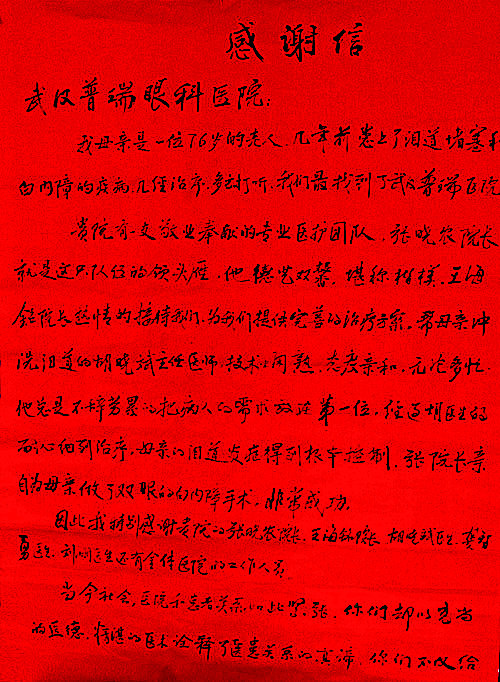 感谢信
武汉普瑞眼科医院：
我母亲是一位76岁的老人，几年前患上了泪道堵塞和
白内障的疾病，几经治疗，多方打听，我们最找到了武汉普瑞医院
贵院有一支敬业奉献的专业医护团队，张晓农院长
就是这只队伍的领头雁，他德艺双馨，堪称楷模，王海
院长热情的接待我们，为我们提供完善的治疗方案，帮母亲冲
洗泪道的胡晓斌主任医师，技术娴熟，态度亲和，无论多忙，
他总是不辞劳累的把病人的需求放在第一位，经过胡医生的
治疗，母亲的泪道炎症得到根本控制，张院长亲
自为母亲做了双眼的白内障手术，非常成功。
因此我特别感谢贵院的张晓农院长，王海院长，胡晓斌医生，龚
勇医生，刘医生还有全体医院的工作人员
当今社会，医院和患者关系如此紧张，你们却以高尚
的医德，精湛的医术诠释了医患关系的真谛，你们不仅给